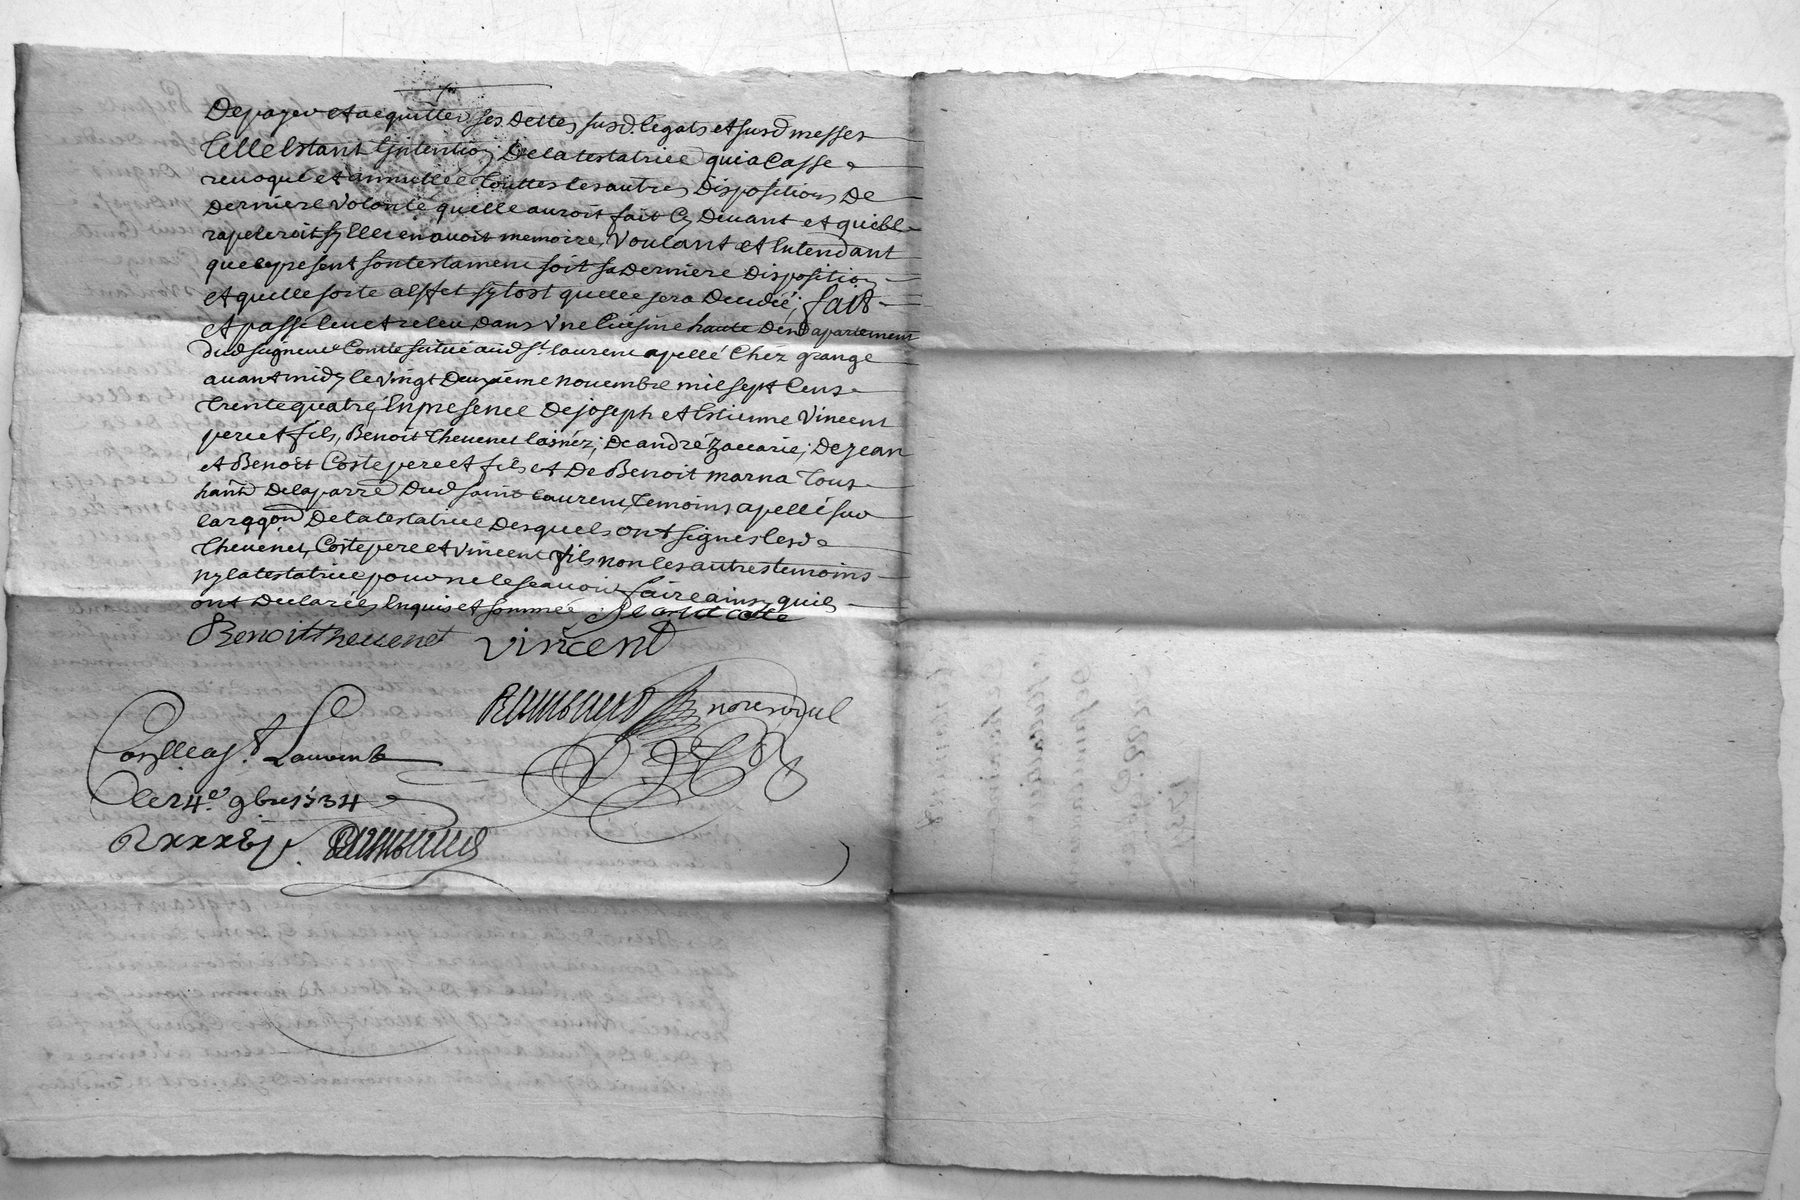 De payer et acquitter ses dettes susd. legats et susd messes
telle estant l'intention de la testatrice qui a Casse
revoqué et annullée touttes les autres dispositions de
derniere volonté quelle auroit fait cy devant et quelle
rapeleroit sy elle en avoit memoire, voulant et entendant
que ce present son testament soit sa derniere disposition
et quelle sorte effet sytost quelle sera decedée; fait
et passé leu et releu dans une Cuisine haute apartement
dud seigneur Comte situé aud St. laurent apellé Chez grange
avant midy le vingt deuxieme novembre mil sept Cens
trente quatre, En presence de joseph et Estienne Vincent
pere et fils, Benoit Thevenet laisnéz; de andré Zaccarie; de jean
et Benoit Coste pere et fils et de Benoit marna tous
de la parre dud saint laurent, temoins apellé sur
de la testatrice desquels ont signés lesd
Thevenet, Coste pere et vincent fils non les autres temoins
ny la testatrice pour ne le scavoir faire ainsy quils
ont declarées Enquis et sommée coste
Benoit Thevenet vincent
no.re royal
Conlle a St. Laurent
le 24e. 9bre 1734